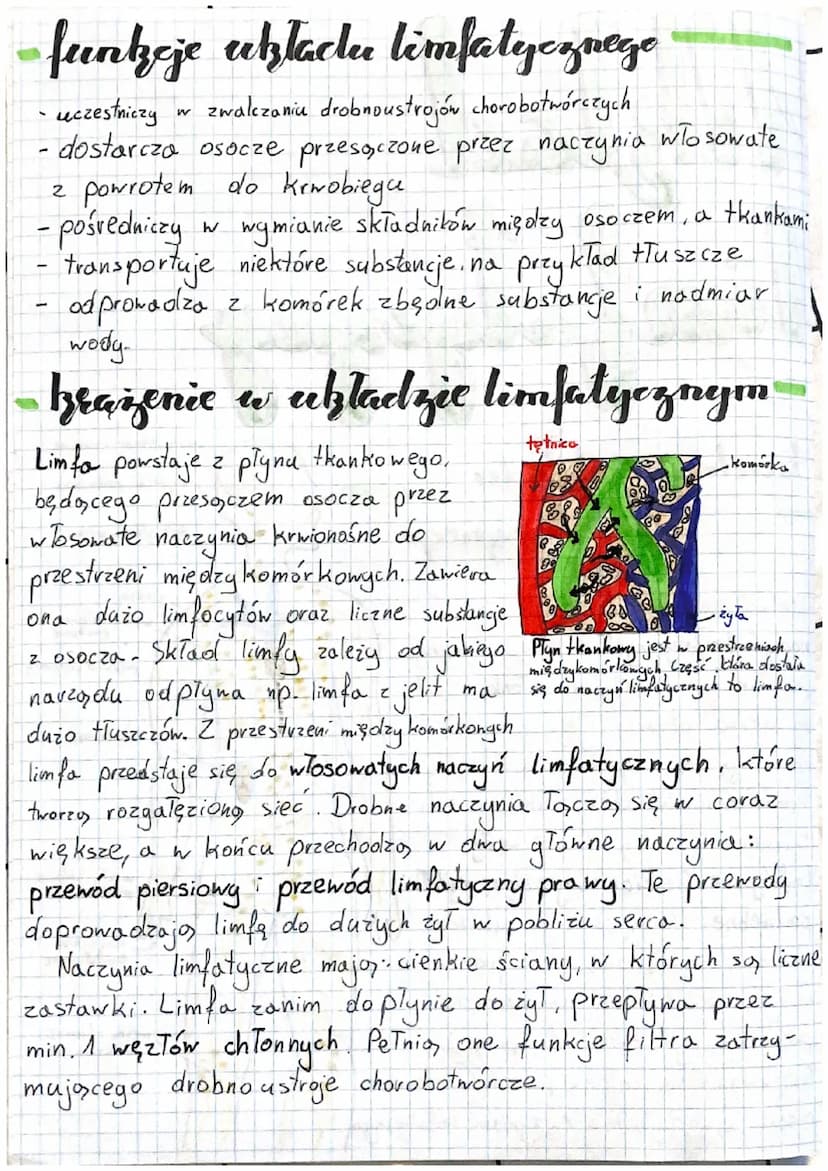 - funkcje układu limfatycznego
- uczestniczy w zwalczaniu drobnoustrojów chorobotwórczych
- dostarcza osocze przesączone przez naczynia włosowate
z powrotem do krwobiegu
- pośredniczy w wymianie składników między osoczem, a tkankami
- transportuje niektóre substancje, na przykład tłuszcze
- odprowadza z komórek zbędne substancje i nadmiar
wody.
- krążenie w układzie limfatycznym
tętnica
komórka
żyła
Płyn tkankowy jest w przestrzeniach
międzykomórkowych. Część, która dostała
się do naczyń limfatycznych to limfa.
Limfa powstaje z płynu tkankowego,
będącego przesączem osocza przez
włosowate naczynia krwionośne do
przestrzeni międzykomórkowych. Zawiera
ona dużo limfocytów oraz liczne substancje
z osocza. Skład limfy zależy od jakiego
narządu odpływa np. limfa z jelit ma
dużo tłuszczów. Z przestrzeni międzykomórkonych
limfa przedstaje się do włosowatych naczyń limfatycznych, które
tworzą rozgałęzioną sieć. Drobne naczynia łączą się w coraz
większe, a w końcu przechodzą w dwa główne naczynia:
przewód piersiowy i przewód limfatyczny prawy. Te przewody
doprowadzają limfę do dużych żył w pobliżu serca.
Naczynia limfatyczne mają cienkie ściany, w których są liczne
zastawki. Limfa zanim dopłynie do żył, przepływa przez
min. 1 węzłów chłonnych. Pełnią one funkcje filtra zatrzy-
mującego drobnoustroje chorobotwórcze.